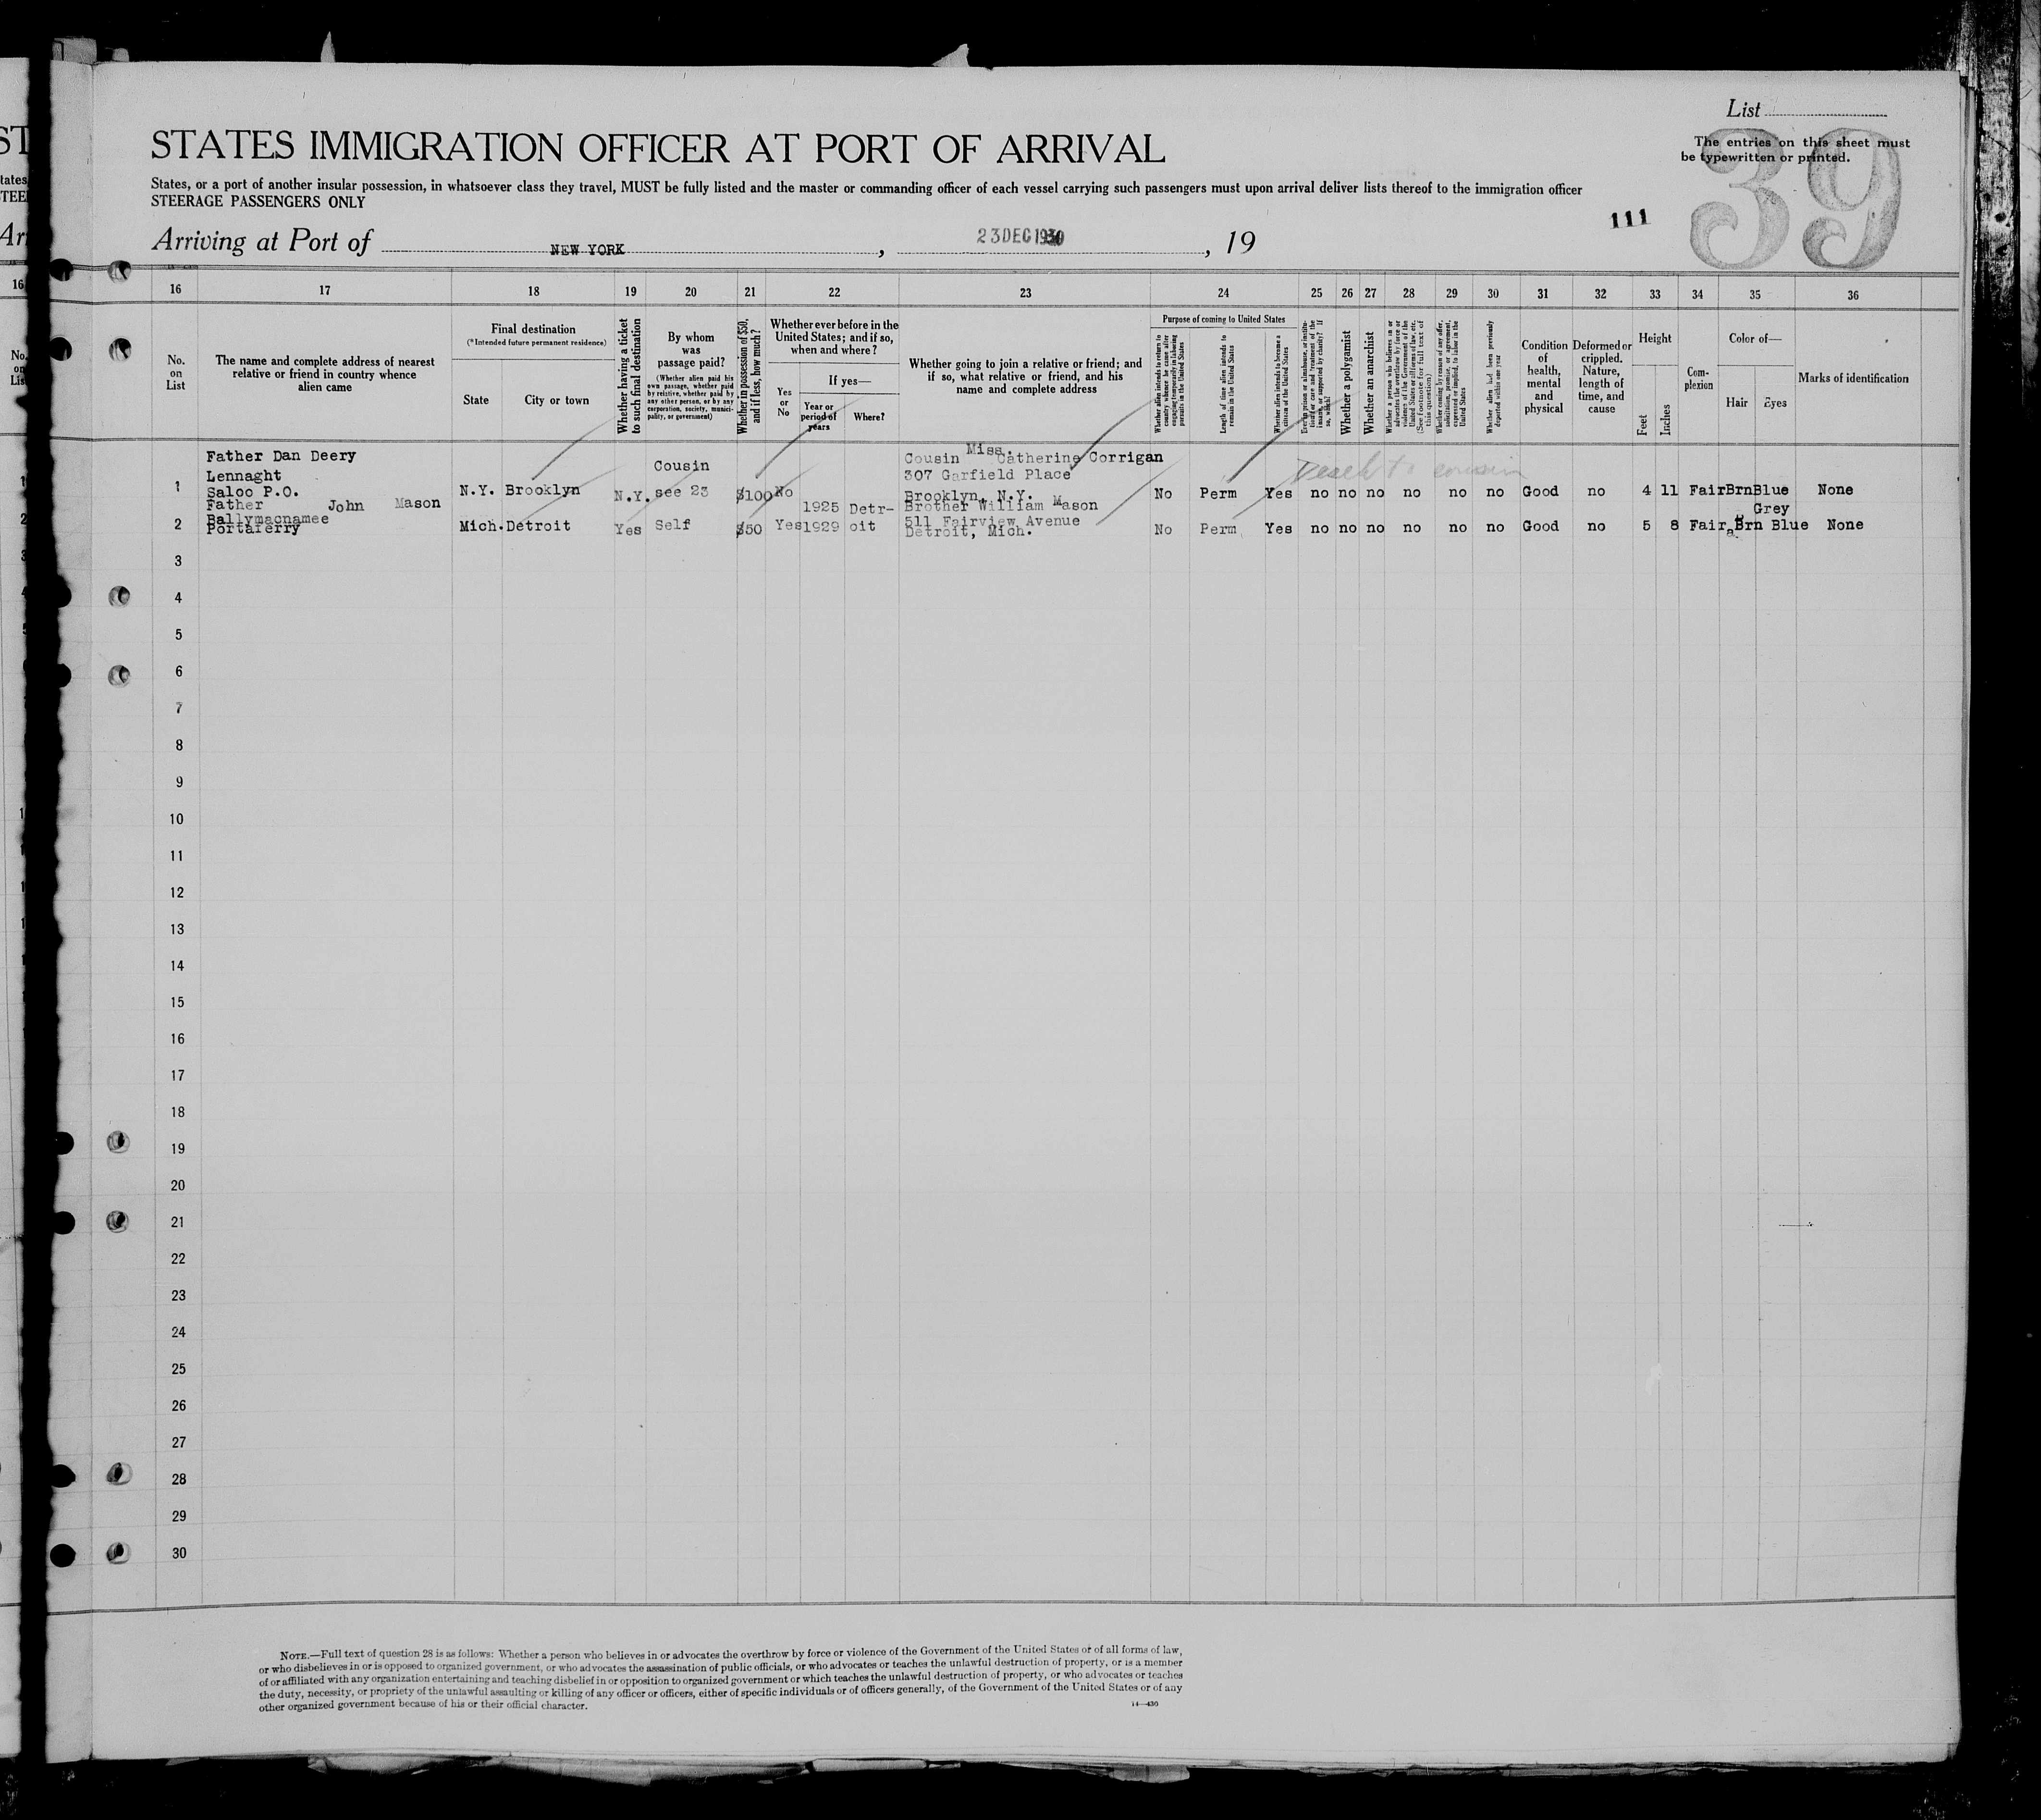 List
The entries on this sheet must
be typewritten or printed.
39
111
STATES IMMIGRATION OFFICER AT PORT OF ARRIVAL
States, or a port of another insular possession, in whatsoever class they travel, MUST be fully listed and the master or commanding officer of each vessel carrying such passengers must upon arrival deliver lists thereof to the immigration officer
STEERAGE PASSENGERS ONLY
Arriving at Port of NEW YORK , 23 DEC 1930 , 19
16 17 18 19 20 21 22 23 24 25 26 27 28 29 30 31 32 33 34 35 36
No.
on
List
The name and complete address of nearest
relative or friend in country whence
alien came
Final destination
(*Intended future permanent residence)
State
City or town
Whether having a ticket
to such final destination
By whom
was
passage paid?
(Whether alien paid his
own passage, whether paid
by relative, whether paid by
any other person, or by any
corporation, society, munici-
pality, or government)
Whether in possession of $50,
and if less, how much?
Whether ever before in the
United States; and if so,
when and where?
Yes
or
No
If yes—
Year or
period of
years
Where?
Whether going to join a relative or friend; and
if so, what relative or friend, and his
name and complete address
Purpose of coming to United States
Whether alien intends to return to
country whence he came after
engaging temporarily in laboring
pursuits in the United States
Length of time alien intends to
remain in the United States
Whether alien intends to become a
citizen of the United States
Ever in prison or almshouse, or institu-
tion for care and treatment of the
insane, or supported by charity? If
so, which?
Whether a polygamist
Whether an anarchist
Whether a person who believes in or
advocates the overthrow by force or
violence of the Government of the
United States or all forms of law, etc.
(See footnote for full text of
this question)
Whether coming by reason of any offer,
solicitation, promise, or agreement,
expressed or implied, to labor in the
United States
Whether alien had been previously
deported within one year
Condition
of
health,
mental
and
physical
Deformed or
crippled.
Nature,
length of
time, and
cause
Height
Feet
Inches
Com-
plexion
Color of—
Hair
Eyes
Marks of identification
Father Dan Deery
Lennaght
Saloo P.O.
1 N.Y. Brooklyn N.Y. Cousin
see 23 $100 No
Cousin Miss. Catherine Corrigan
307 Garfield Place
Brooklyn, N.Y.
No Perm Yes no no no no no no Good no 4 11 Fair Brn Blue None
to cousin
Father John Mason
Ballymacnamee
Portaferry
2 Mich. Detroit Yes Self $50 Yes 1925 Detr-
1929 oit
Brother William Mason
511 Fairview Avenue
Detroit, Mich.
No Perm Yes no no no no no no Good no 5 8 Fair Brn Grey
Blue None
3
4
5
6
7
8
9
10
11
12
13
14
15
16
17
18
19
20
21
22
23
24
25
26
27
28
29
30
NOTE.—Full text of question 28 is as follows: Whether a person who believes in or advocates the overthrow by force or violence of the Government of the United States or of all forms of law,
or who disbelieves in or is opposed to organized government, or who advocates the assassination of public officials, or who advocates or teaches the unlawful destruction of property, or is a member
of or affiliated with any organization entertaining and teaching disbelief in or opposition to organized government or which teaches the unlawful destruction of property, or who advocates or teaches
the duty, necessity, or propriety of the unlawful assaulting or killing of any officer or officers, either of specific individuals or of officers generally, of the Government of the United States or of any
other organized government because of his or their official character.
14—430